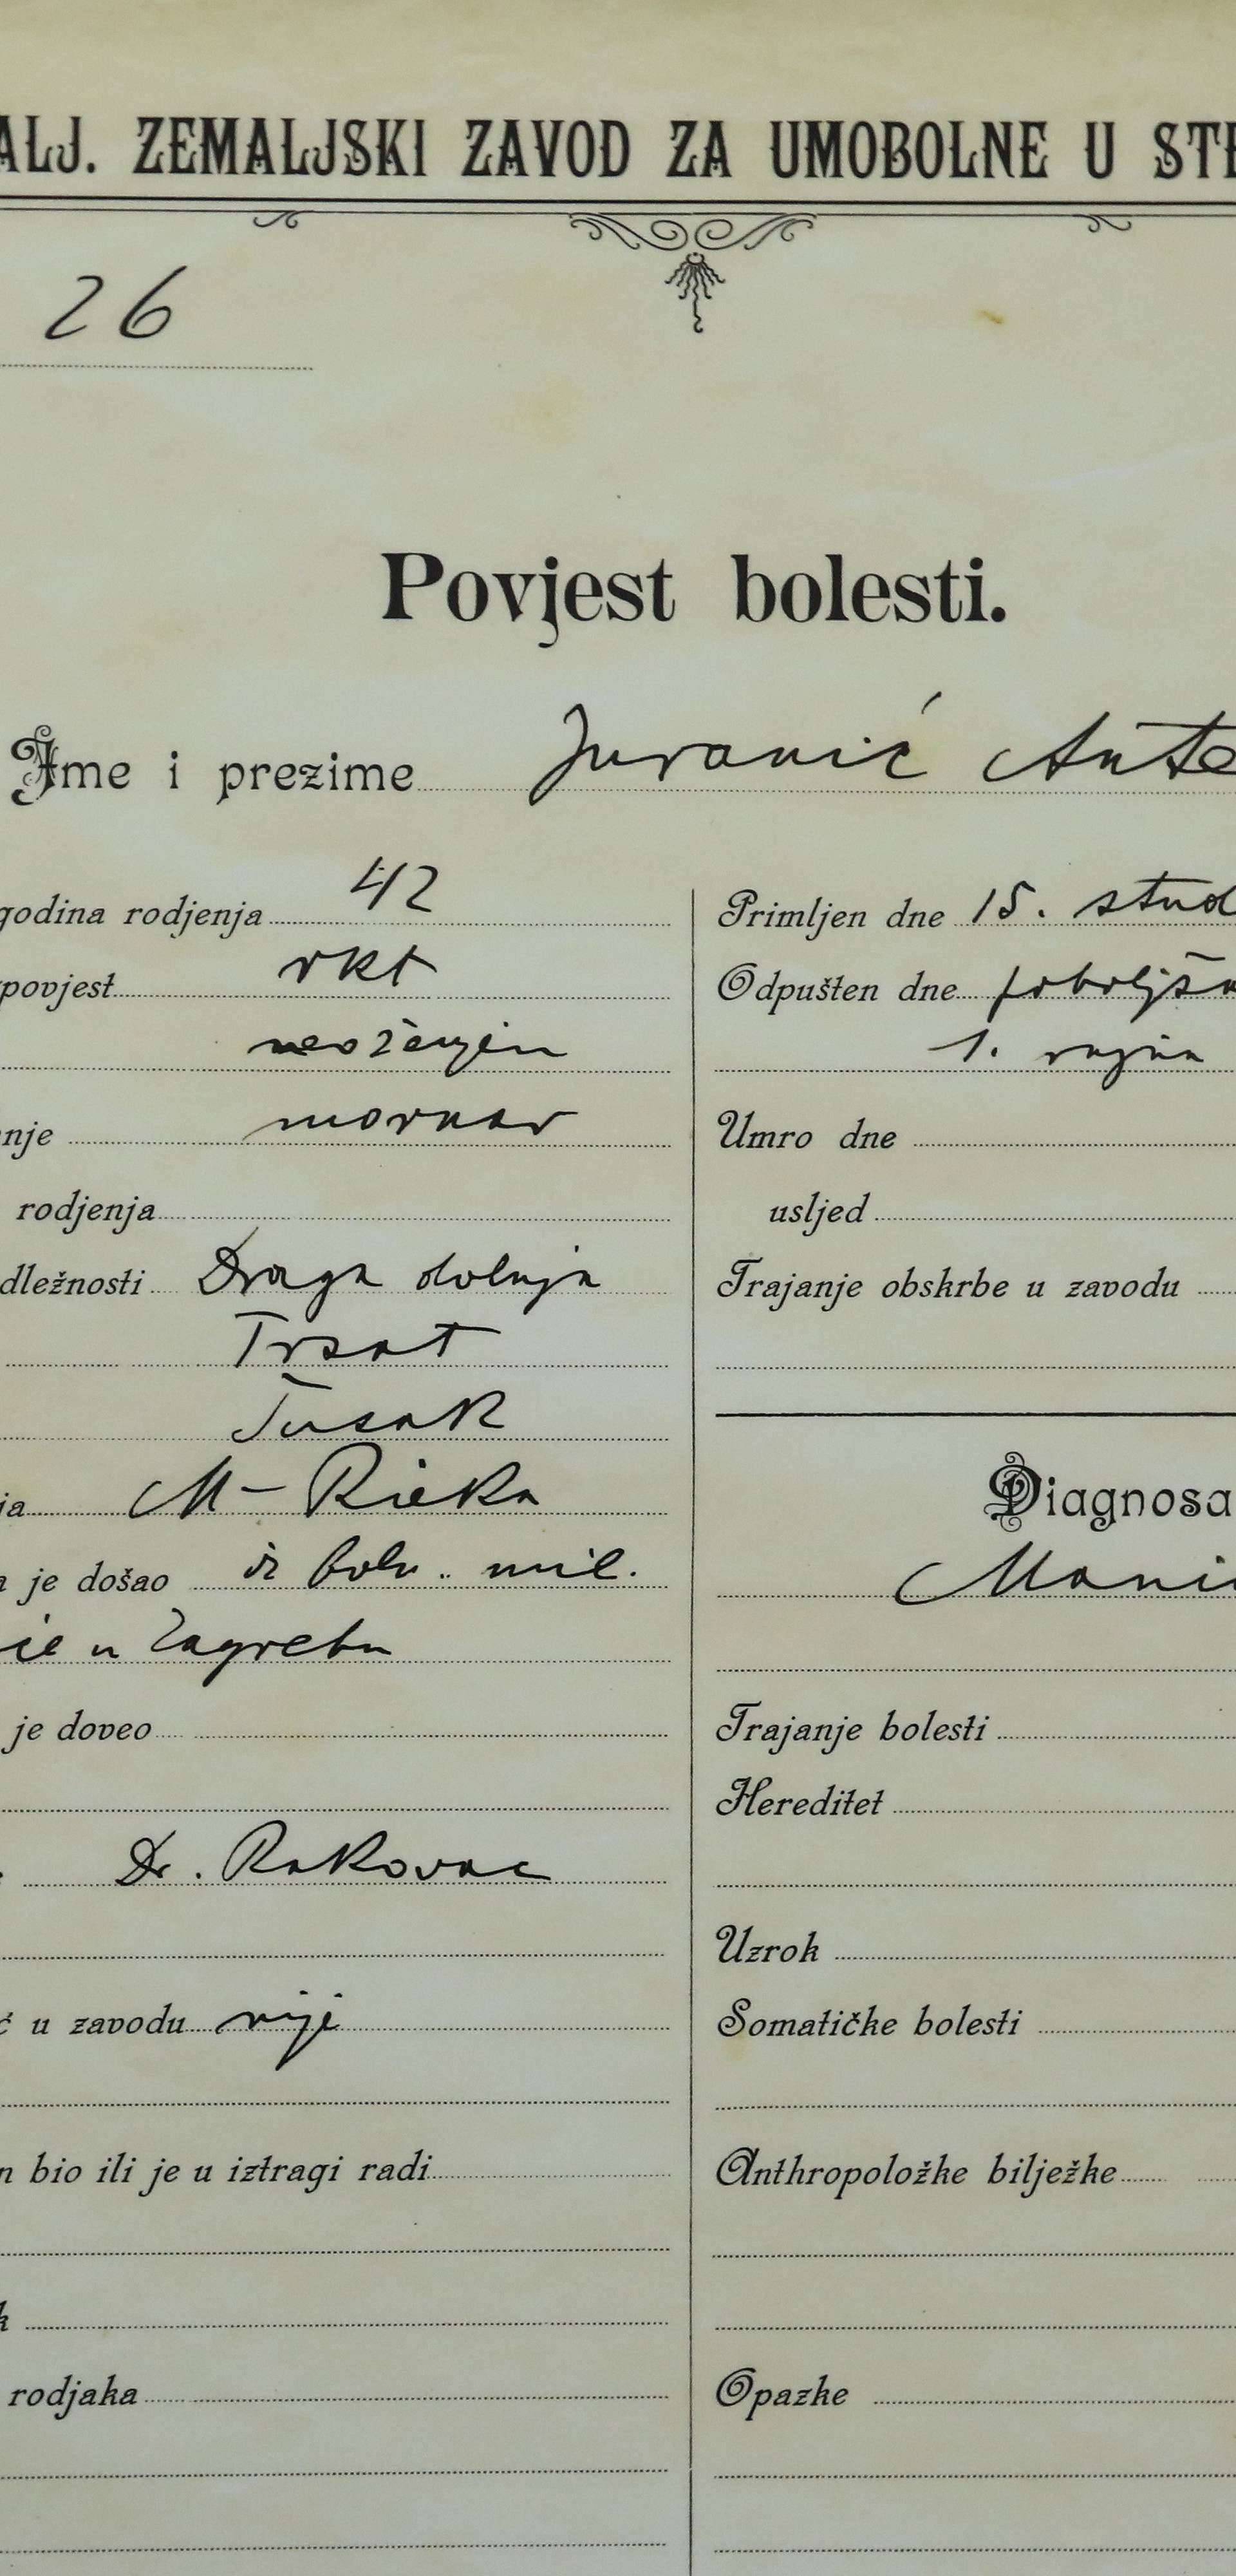 ALJ. ZEMALJSKI ZAVOD ZA UMOBOLNE U STE
26
Povjest bolesti.
Ime i prezime Juranić Ante
godina rodjenja 42
povjest rkt
neoženjen
nje mornar
rodjenja
dležnosti Draga dolnja
Trsat
Sušak
ja M- Rieka
a je došao iz boln.. mil.
ie u Zagrebu
je doveo
Dr. Rakovac
ć u zavodu nije
n bio ili je u iztragi radi
k
rodjaka
Primljen dne 15. stud
Odpušten dne poboljša
1. rujna
Umro dne
usljed
Trajanje obskrbe u zavodu
Diagnosa
Mani
Trajanje bolesti
Hereditet
Uzrok
Somatičke bolesti
Anthropoložke bilježke
Opazke